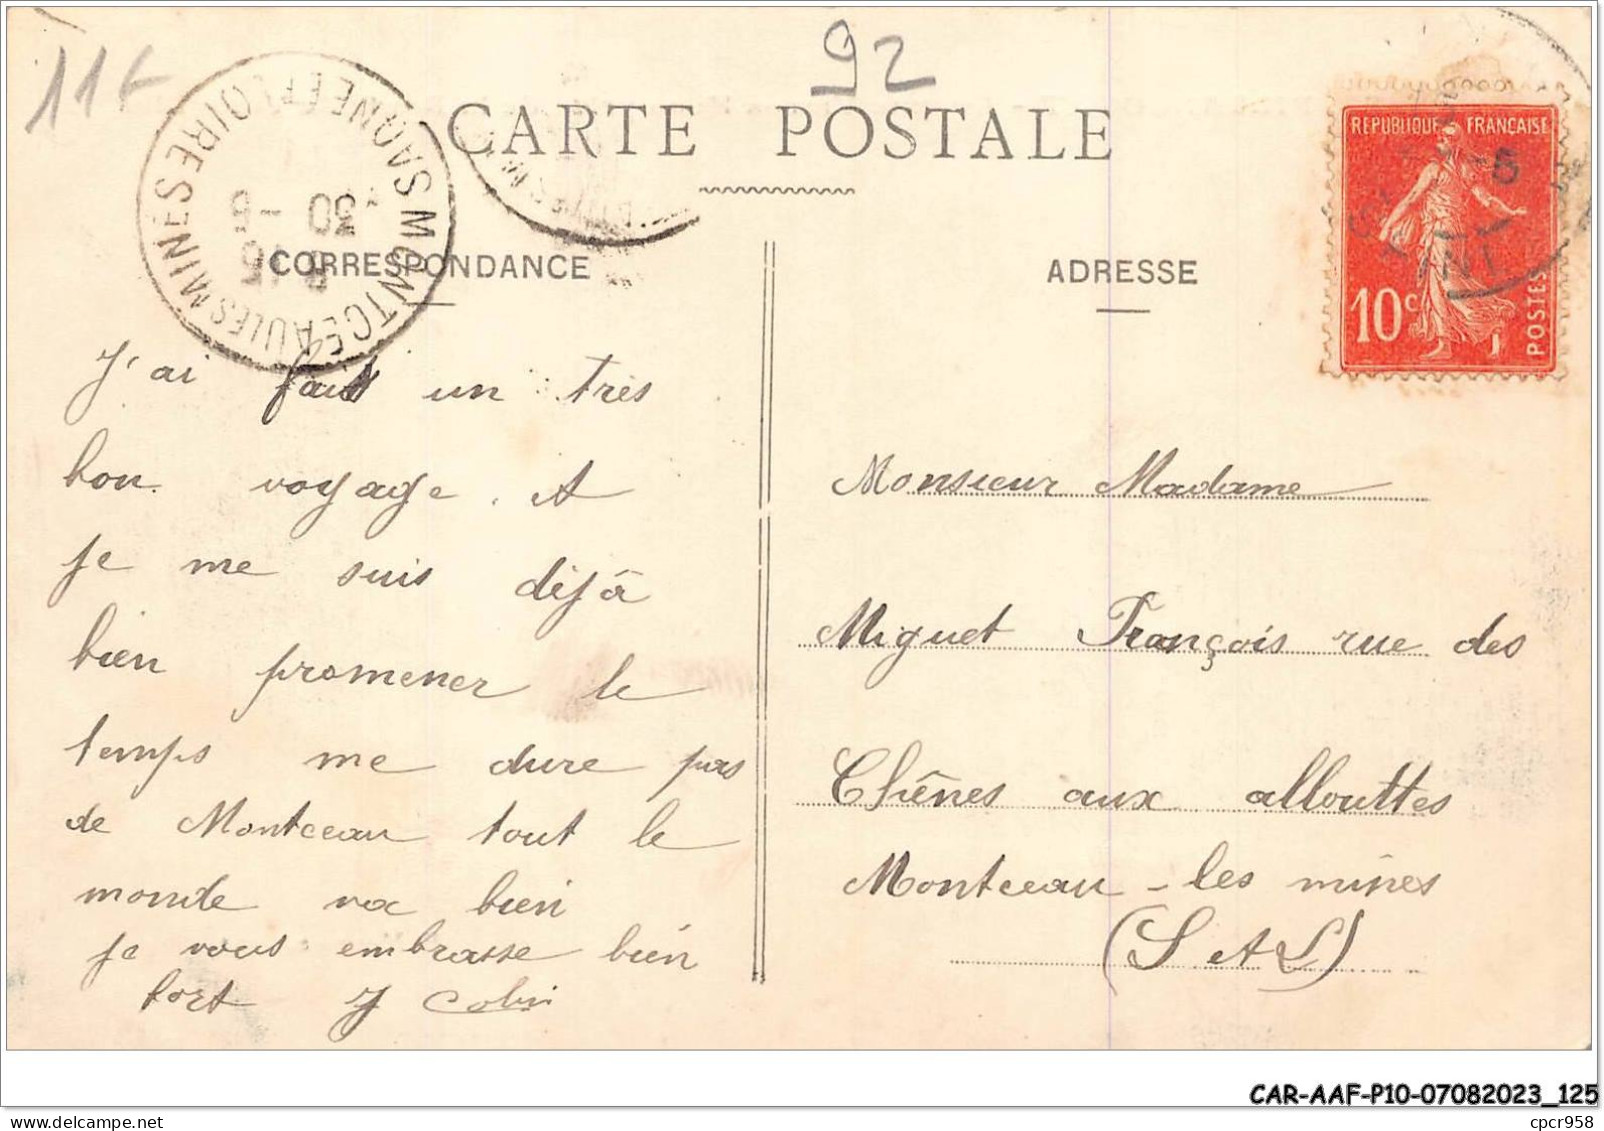 11 F
92
CARTE POSTALE
MONTCEAU LES MINES SAONE ET LOIRE
30 -5
REPUBLIQUE FRANCAISE
10 c
POSTES
CORRESPONDANCE
ADRESSE
J'ai fait un très
bon voyage. et
je me suis déjà
bien promener le
temps me dure pas
de Montceau tout le
monde va bien
je vous embrasse bien
fort J Colin
Monsieur Madame
Miguet François rue des
Chênes aux allouttes
Montceau-les mines
(S et L)
CAR-AAF-P10-07082023_125
cpcr958